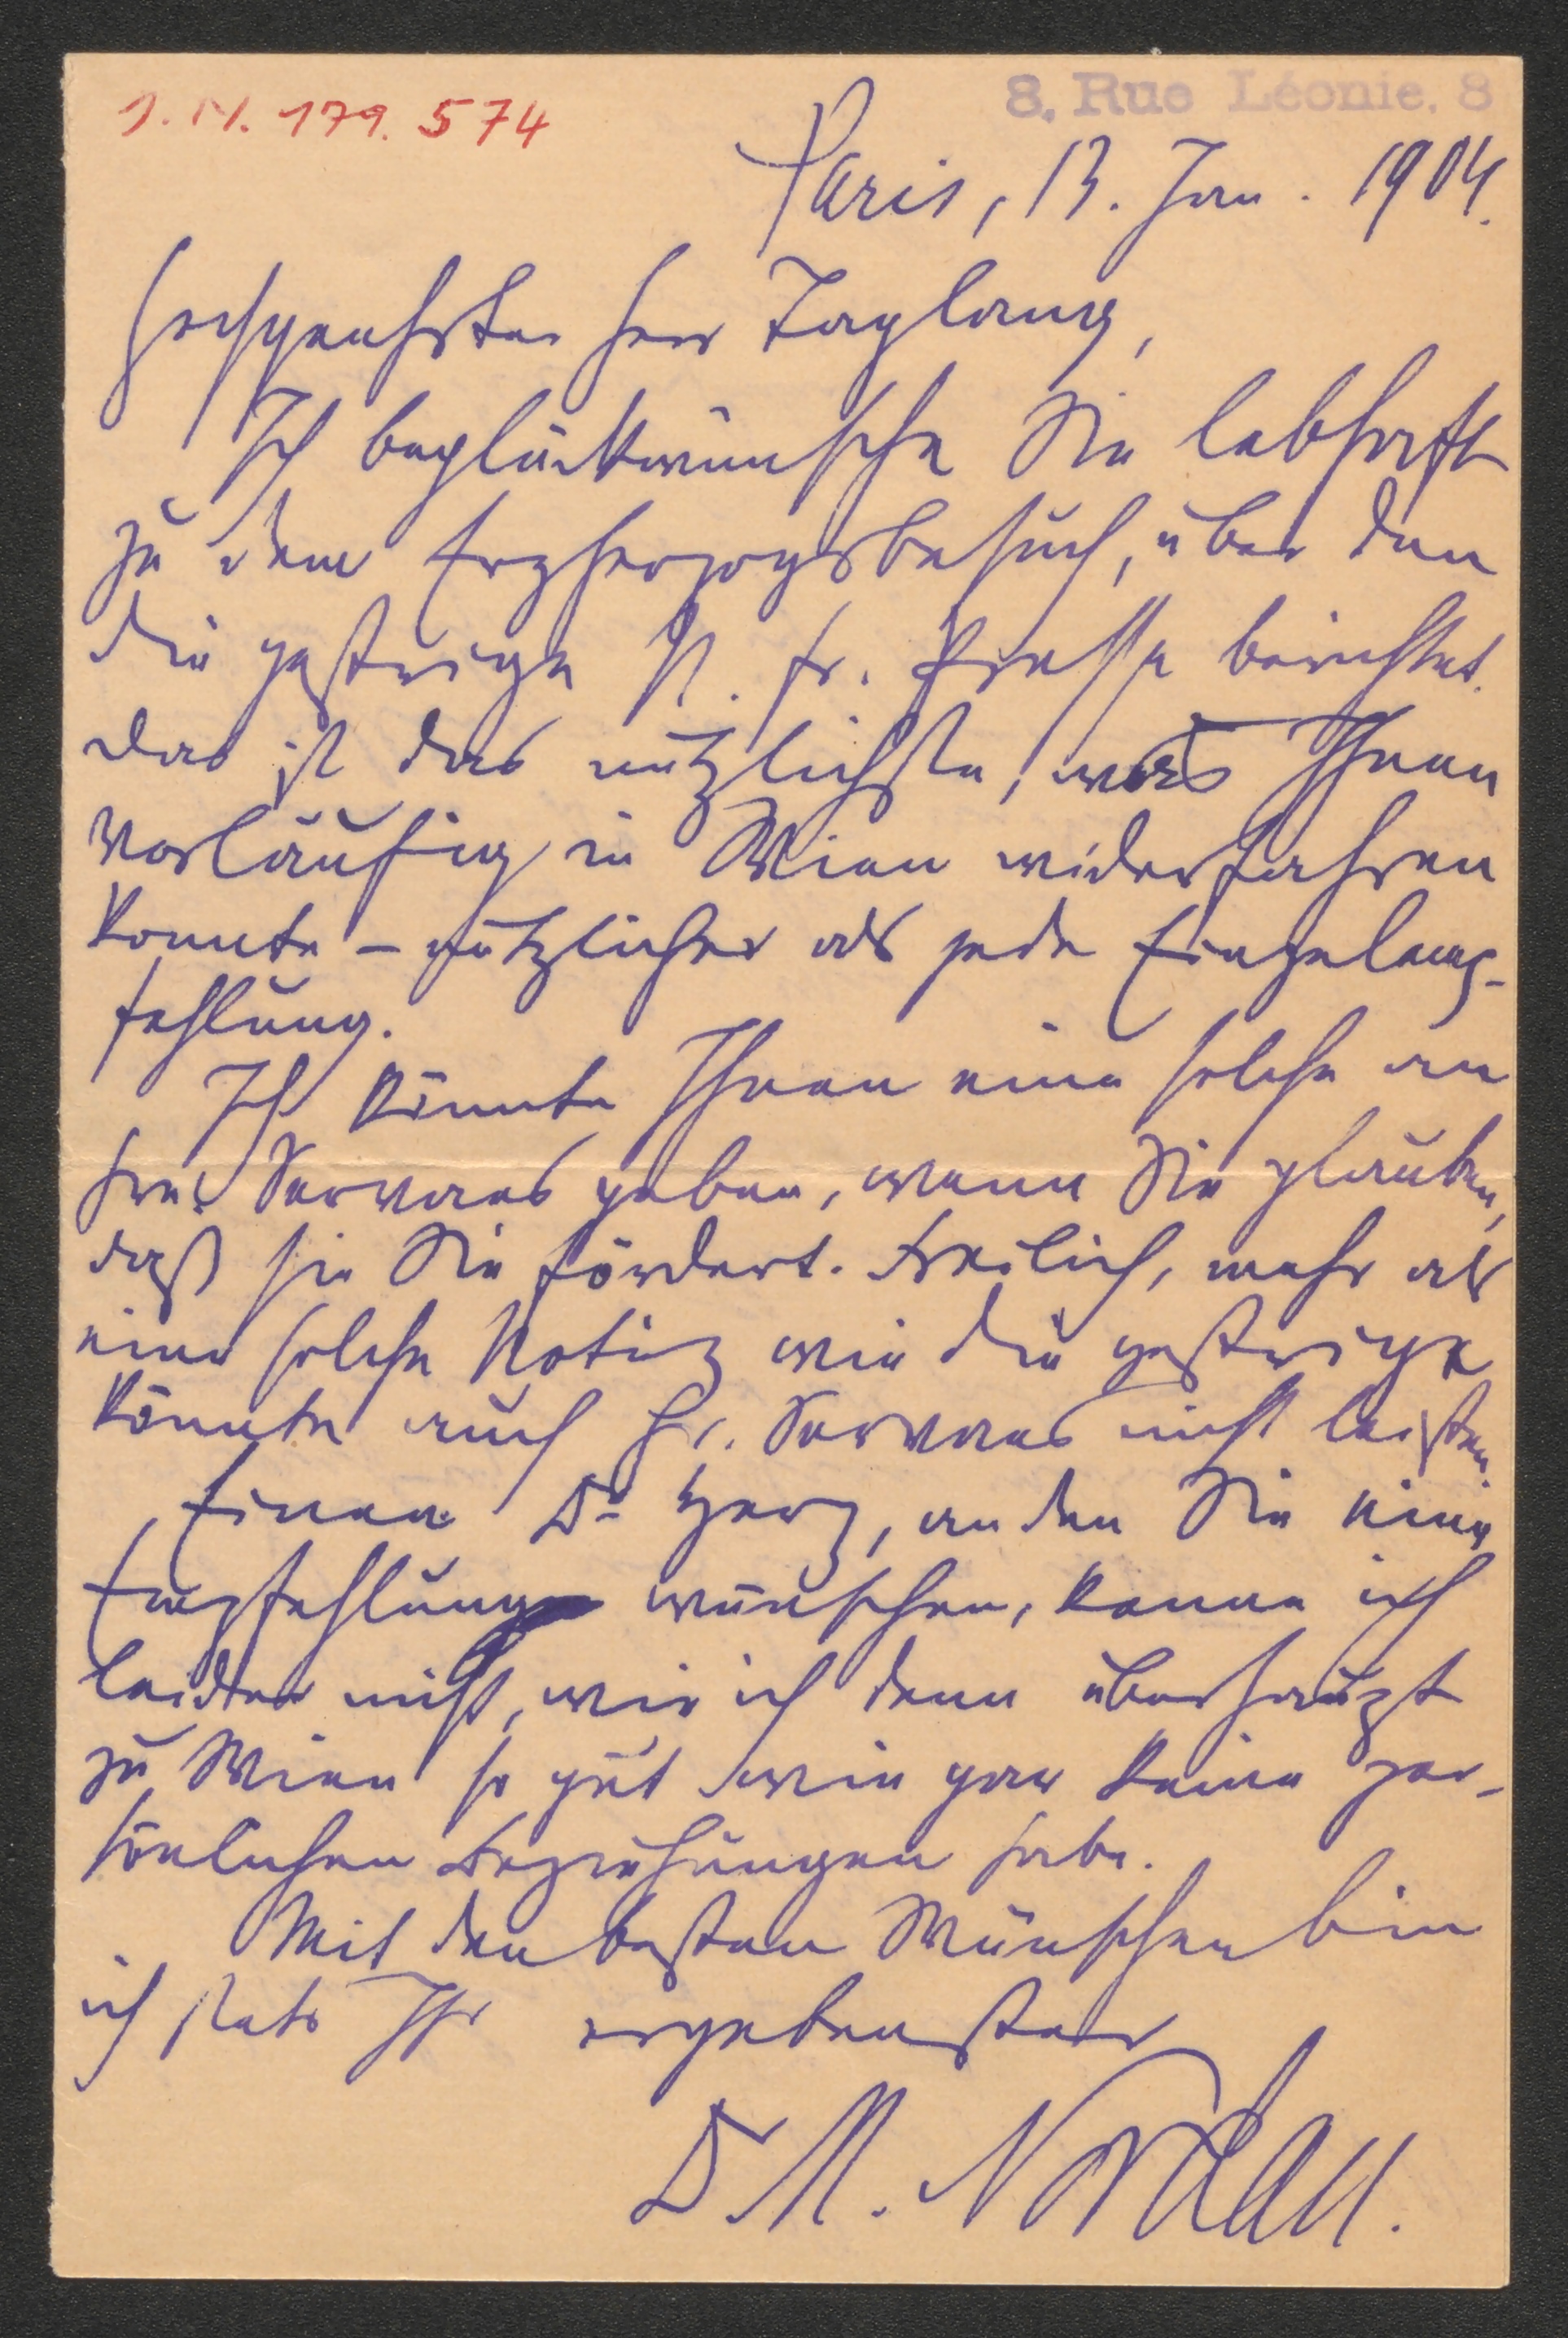 J. N. 179.574
8, Rue Léonie, 8
Paris, 13. Jan. 1904.
Hochgeehrter Herr Taglang,
Ich beglückwünsche Sie lebhaft
zu dem Erzherzogsbesuch, über den
die gestrige N. Fr. Presse berichtet.
Das ist das nützlichste, was Ihnen
vorläufig in Wien widerfahren
konnte – nützlicher als jede Einzelemp-
fehlung.
Ich könnte Ihnen eine solche an
Servaes geben, wenn Sie glauben,
daß sie Sie fördert. Freilich, mehr als
eine solche Notiz wie die gestrige
könnte auch Hr. Servaes nicht leisten.
Einen Dr Herz, an den Sie eine
Empfehlung wünschen, kenne ich
leider nicht, wie ich denn überhaupt
zu Wien so gut wie gar keine per-
sönlichen Beziehungen habe.
Mit den besten Wünschen bin
ich stets Ihr ergebenster
Dr M. Nordau.